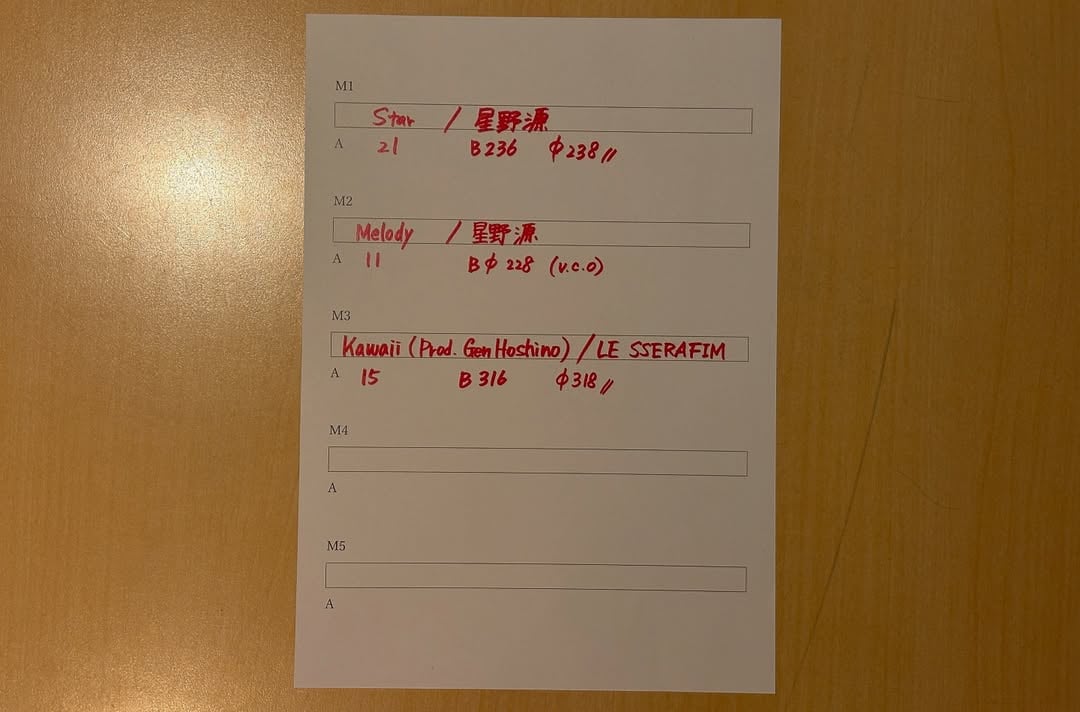 M1
Star / 星野源
A 21 B 236 φ238〃
M2
Melody / 星野源
A 11 Bφ 228 (v.c.o)
M3
Kawaii (Prod. Gen Hoshino) / LE SSERAFIM
A 15 B 316 φ318〃
M4
A
M5
A